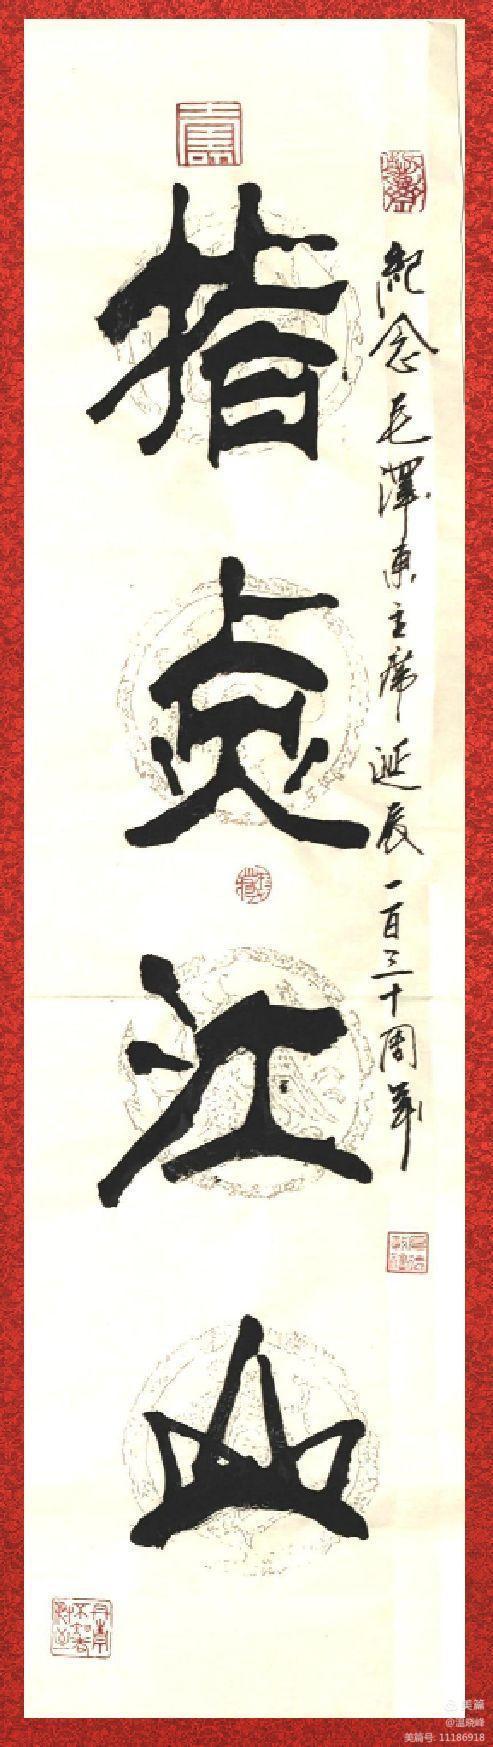 指点江山
纪念毛澤东主席诞辰一百三十周年
美篇
@温晓峰
美篇号: 11186918